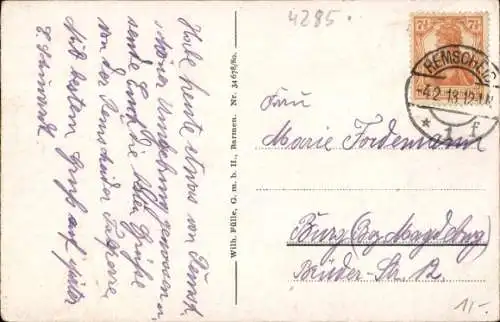 4285.
7½ 7½
REMSCHEID
-4.2.18.12-1N.
* 1 f
Habe heute etwas von Remsch.
schöner Umgebung genossen u.
sende Euch die besten Grüße
von der Remscheider Talsperre.
Mit bestem Gruß auf später
E.
Wilh. Fülle, G. m. b. H., Barmen. Nr. 34678/80.
Frau
Marie Fordemann
Burg (Bz. Magdebg)
Brüder-Str. 12.
11/-